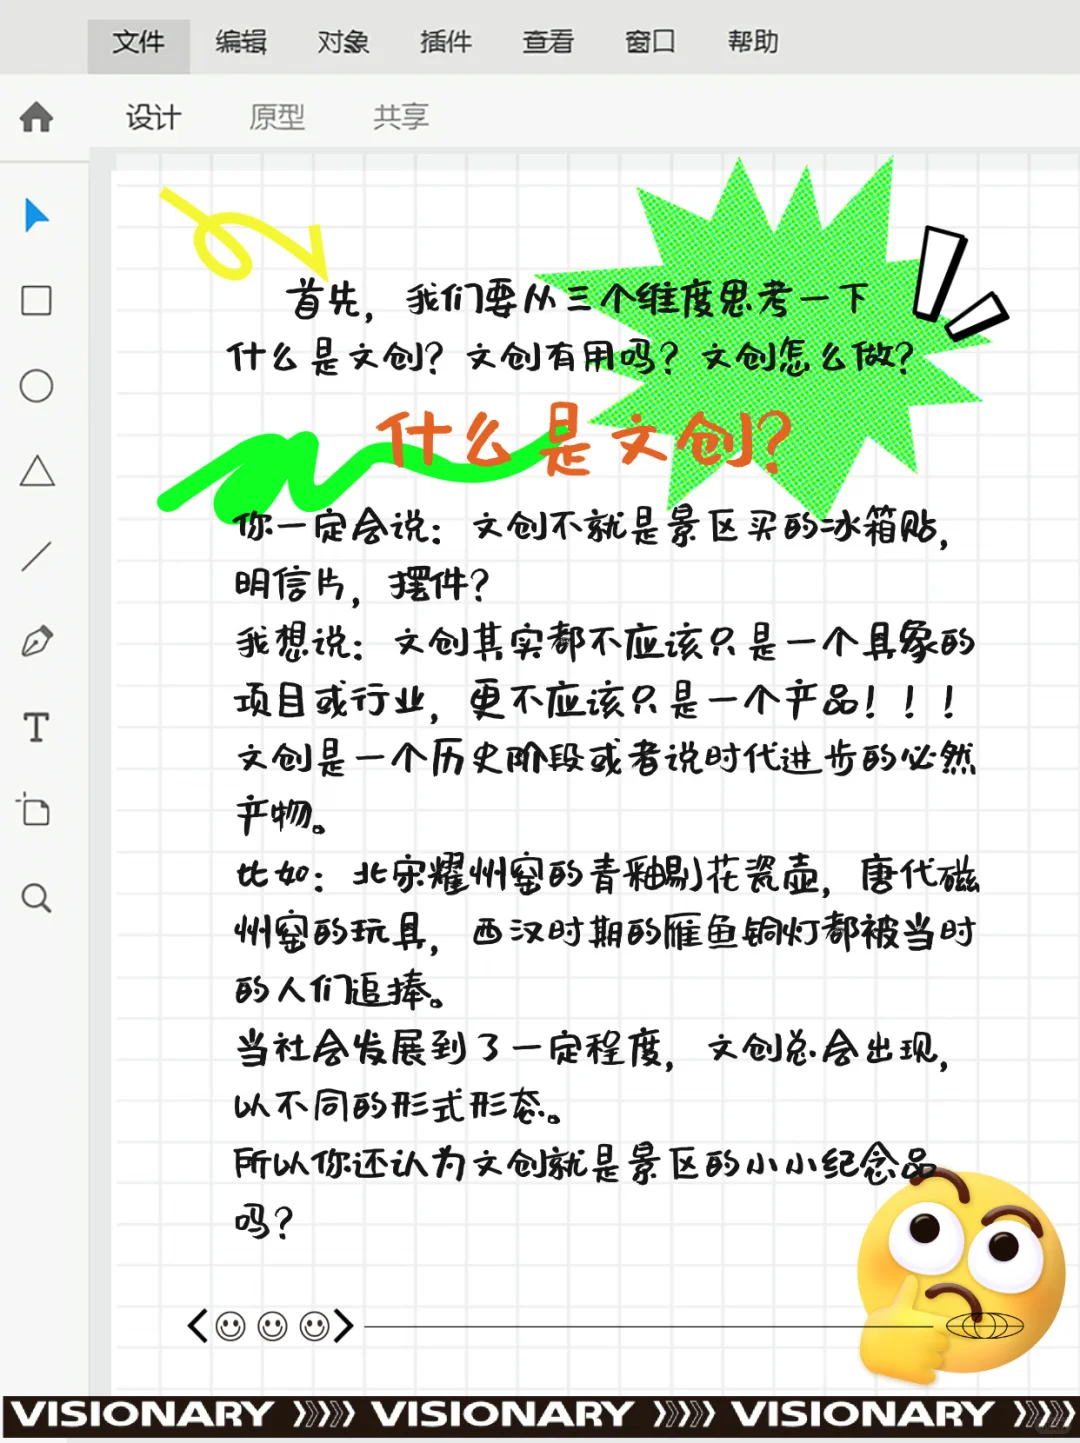 文件 编辑 对象 插件 查看 窗口 帮助
设计 原型 共享
首先，我们要从三个维度思考一下
什么是文创？文创有用吗？文创怎么做？
什么是文创？
你一定会说：文创不就是景区买的冰箱贴，
明信片，摆件？
我想说：文创其实都不应该只是一个具象的
项目或行业，更不应该只是一个产品！！！
文创是一个历史阶段或者说时代进步的必然
产物。
比如：北宋耀州窑的青釉剔花瓷壶，唐代磁
州窑的玩具，西汉时期的雁鱼铜灯都被当时
的人们追捧。
当社会发展到了一定程度，文创总会出现，
以不同的形式形态。
所以你还认为文创就是景区的小小纪念品
吗？
T
VISIONARY VISIONARY VISIONARY